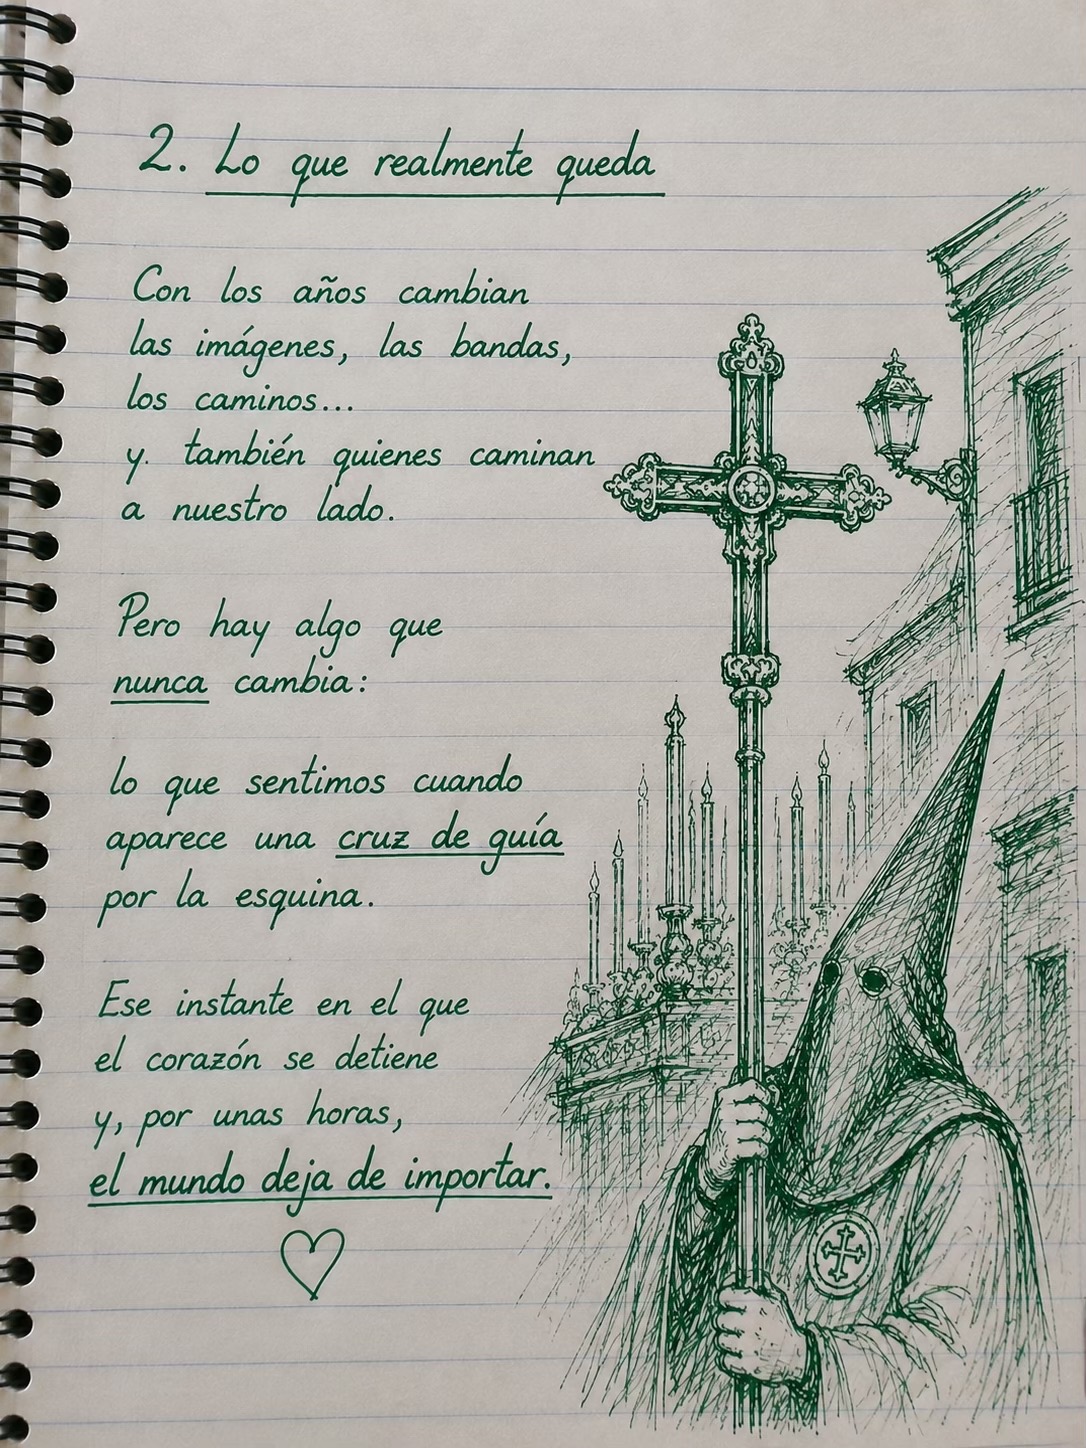 2. Lo que realmente queda
Con los años cambian
las imágenes, las bandas,
los caminos...
y. también quienes caminan
a nuestro lado.
Pero hay algo que
nunca cambia:
lo que sentimos cuando
aparece una cruz de guía
por la esquina.
Ese instante en el que
el corazón se detiene
y, por unas horas,
el mundo deja de importar.